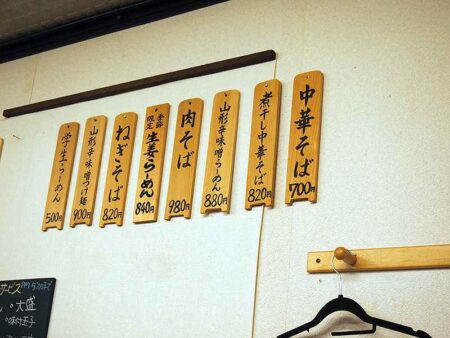 中華そば
700円
煮干し中華そば
820円
山形辛味噌らーめん
880円
肉そば
980円
季節限定
生姜らーめん
840円
ねぎそば
820円
山形辛味噌つけ麺
900円
学生らーめん
500円
サービス
大盛
味付玉子